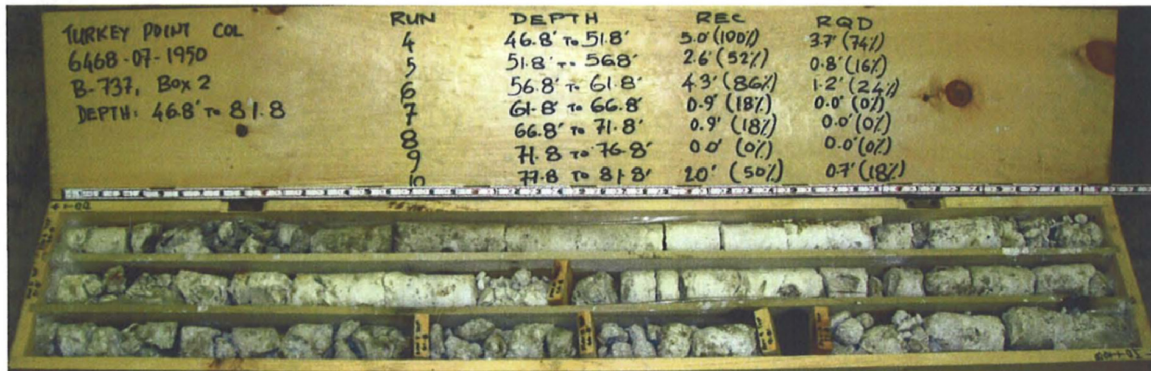 TURKEY POINT COL
6468-07-1950
B-737, BOX 2
DEPTH: 46.8' TO 81.8
RUN DEPTH REC RQD
4 46.8' TO 51.8' 5.0' (100%) 3.7' (74%)
5 51.8' TO 56.8' 2.6' (52%) 0.8' (16%)
6 56.8' TO 61.8' 4.3' (86%) 1.2' (24%)
7 61.8' TO 66.8' 0.9' (18%) 0.0' (0%)
8 66.8' TO 71.8' 0.9' (18%) 0.0' (0%)
9 71.8 TO 76.8' 0.0' (0%) 0.0' (0%)
10 77.8 TO 81.8' 2.0' (50%) 0.7' (18%)